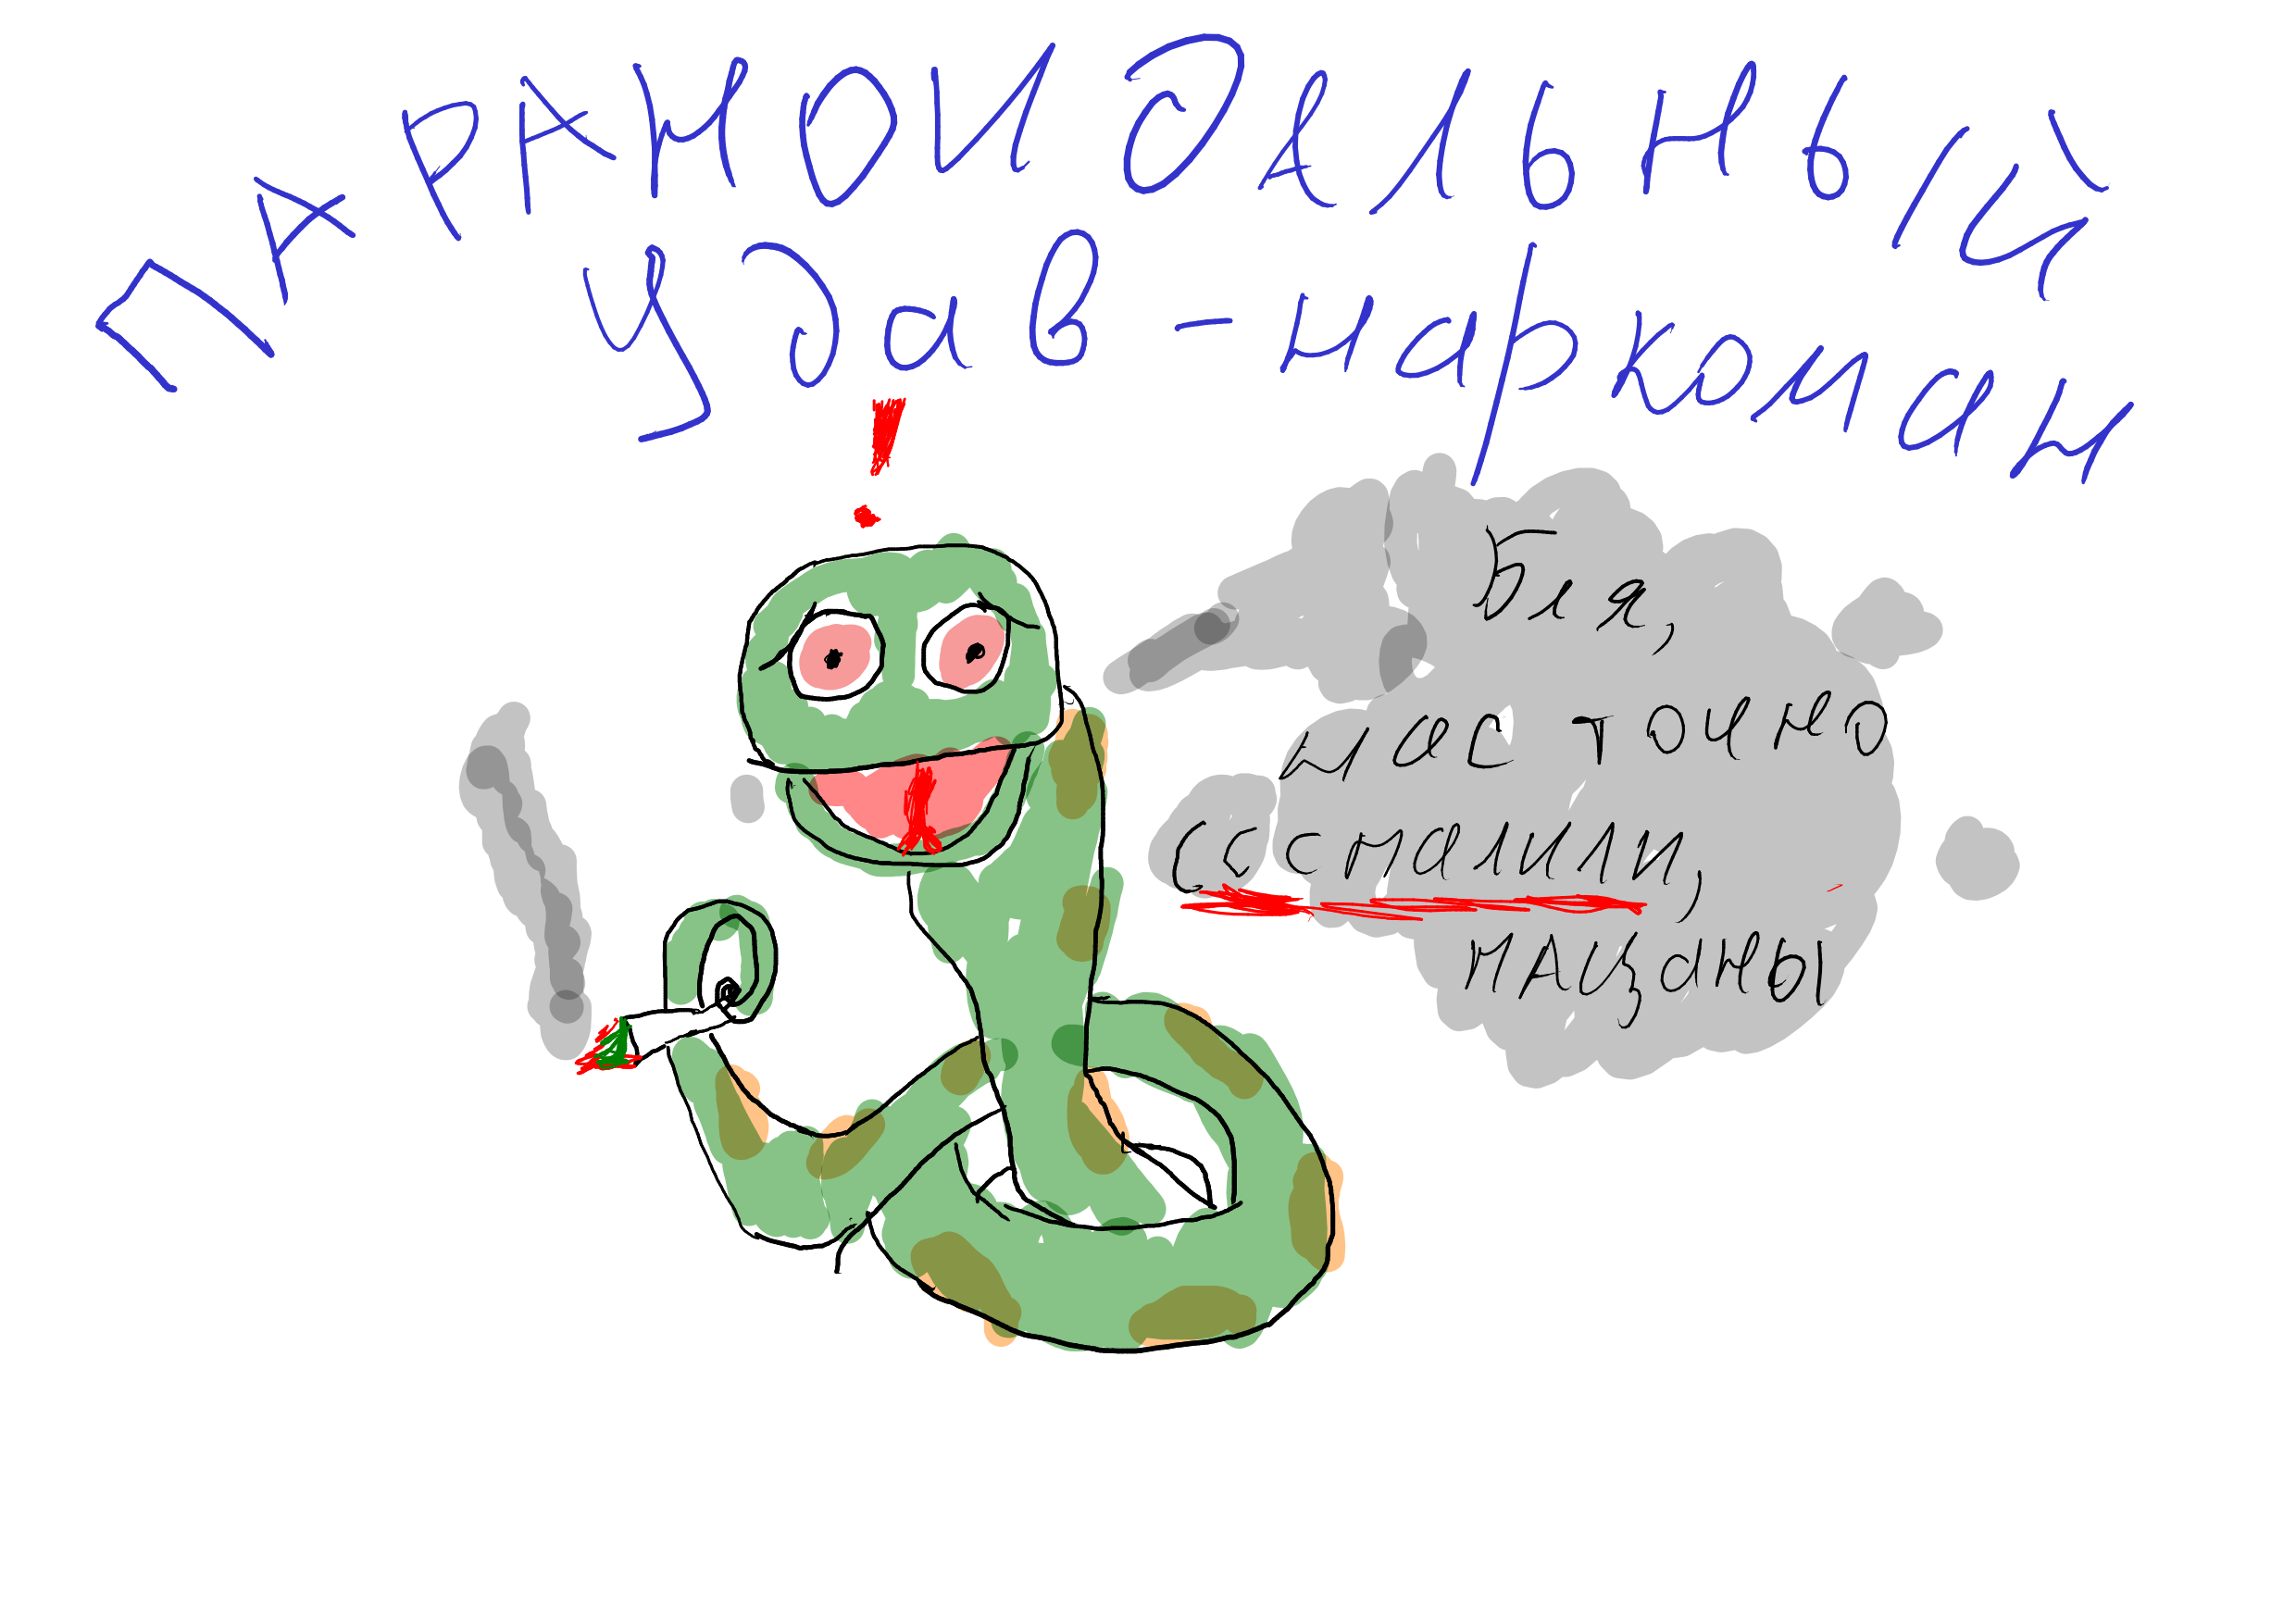 ПАРАНОИдальный
Удав-наркоман
!
Бля,
нас точно
сосмалили,
пацаны